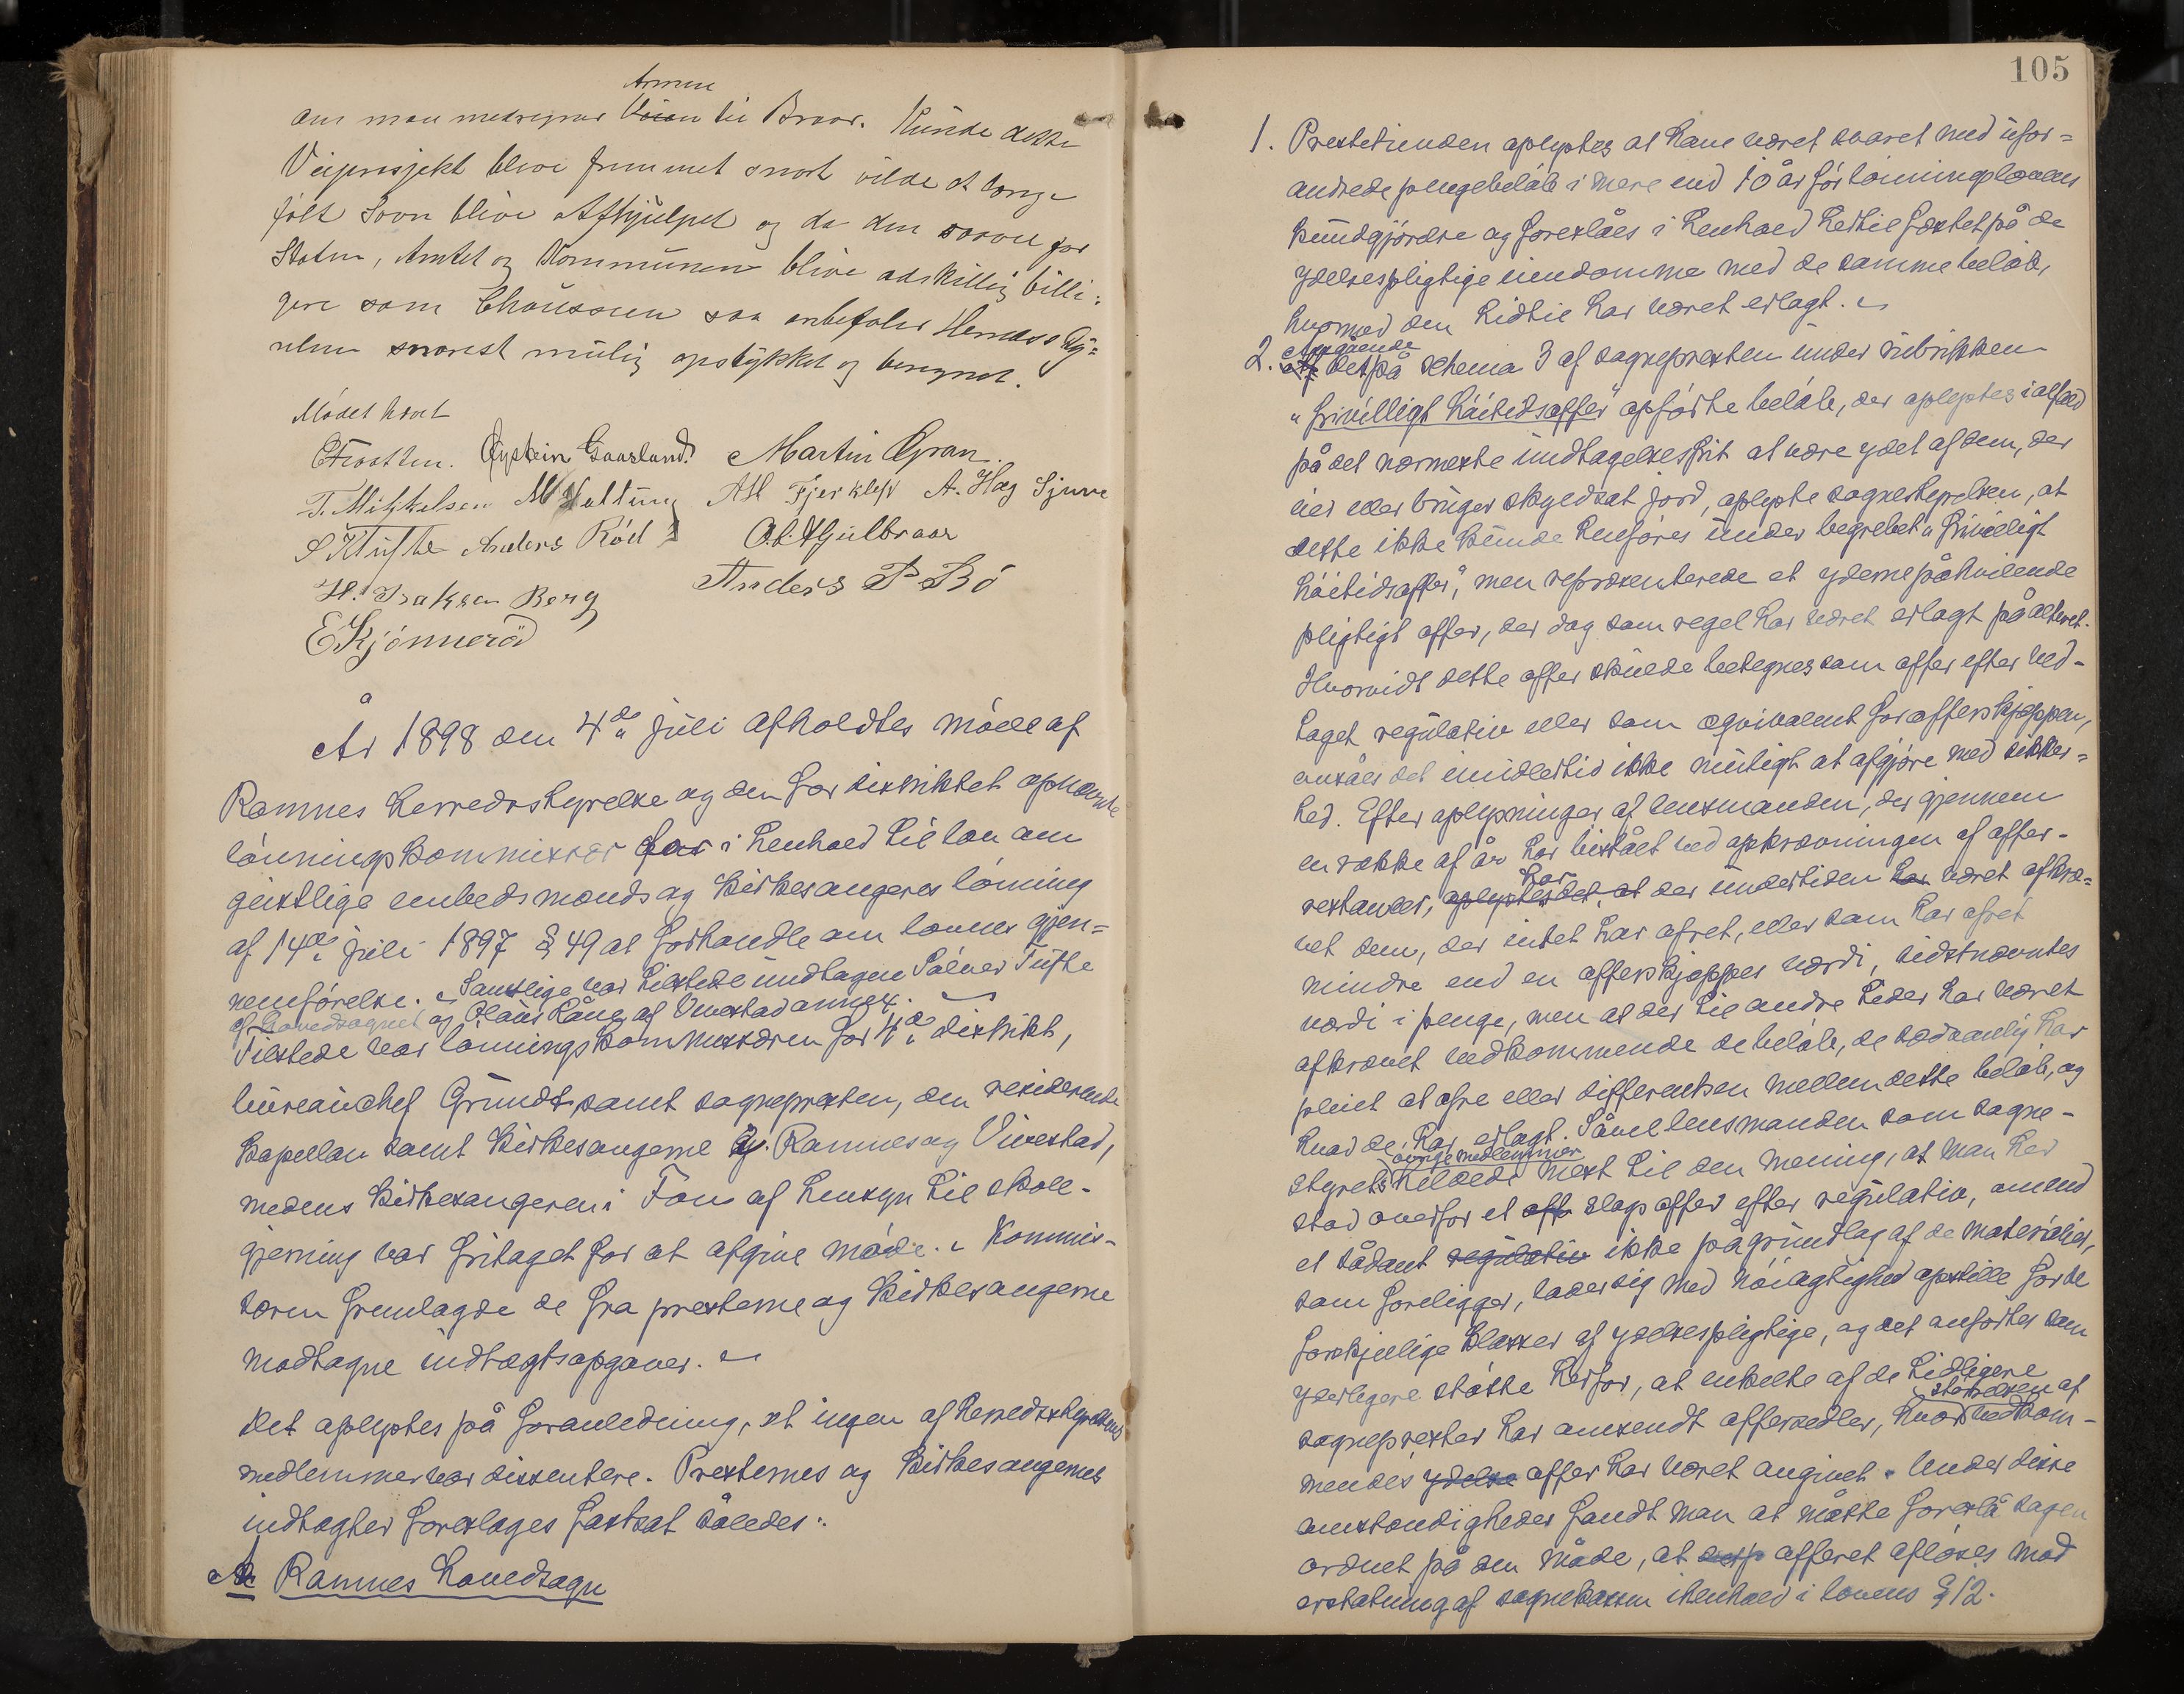 Armen
om man medregner Veien til Braar. Kunde dette
Veiprosjekt blive fremmet snart vilde et længe
følt Savn blive Afhjulpet og da den saavel for
Staten, Amtet og Kommunen blive adskillig billi=
gere som Chausseen saa anbefales Herredssty=
relsen snarest mulig opstykket og beregnet.
Mødet hævet
Øystein Gaarland. Martin Gran.
T. Mikkelsen A. Hag Sjuve
S Tufte Anders Röd O. C. Hjulbraar
H. Isaksen Berg Anders P Bö
E Kjønnerød
År 1898 den 4de juli afholdtes møde af
Ramnes herredsstyrelse og den for distriktet opnævnte
lønningskommissær for i henhold til lov om
geistlige embedsmænds og kirkesangeres lønning
af 14de juli 1897 § 49 at forhandle om lovens gjen=
nemførelse. Samtlige var tilstede undtagen Sölver Tufte
af hovedsognet og Olaus Lång af Vivestad annex.
Tilstede var lønningskommissæren for 4de distrikt,
bureauchef Grundt samt sognepræsten, den residerende
kapellan samt kirkesangerne i Ramnes og Vivestad,
medens kirkesangeren i Fon af hensyn til skole-
gjerning var fritaget for at afgive møde. Kommis-
særen fremlagde de fra presterne og kirkesangerne
modtagne indtægtsopgaver.
Det oplystes på foranledning, at ingen af herredsstyrelsens
medlemmer var dissentere. Presternes og kirkesangernes
indtægter foreslages fastsat således:
A Ramnes hovedsogn
105
1. Prestetienden oplystes at have været svaret med ufor=
andrede pengebeløb i mere end 10 år før lønningslovens
kundgjørelse og foreslåes i henhold hertil fæstet på de
ydelsespligtige eiendomme med de samme beløb,
hvormed den hidtil har været erlagt.
Angående
2. det på schema 3 af sognepresten under rubrikken
"frivilligt høitidsoffer" opførte beløb, der oplystes ialfald
på det nærmeste undtagelsesfrit at være ydet af dem, der
eier eller bruger skyldsat jord, oplyste sognestyrelsen, at
dette ikke kunde henføres under begrebet "frivilligt
høitidsoffer", men repræsenterede et yderne påhvilende
pligtigt offer, der dog som regel har været erlagt på alteret.
Hvorvidt dette offer skulde betegnes som offer efter ved-
taget regulativ eller som æqvivalent for offerskjæppen,
ansåes det imidlertid ikke muligt at afgjøre med sikker=
hed. Efter oplysninger af lensmanden, der gjennem
en række af år har bistået ved opkrævningen af offer-
har
restancer, oplystes det, at der undertiden har været afkræ=
vet dem, der intet har ofret, eller som har ofret
mindre end en offerskjæppes værdi, sidstnævntes
værdi i penge, men at der til andre tider har været
afkrævet vedkommende de beløb, de sædvanlig har
pleiet at ofre eller differentsen mellem dette beløb, og
hvad de har erlagt. Såvel lensmanden som sogne-
øvrige medlemmer
styrets heldede mest til den mening, at man her
stod overfor et slags offer efter regulativ, omend
et sådant regulativ ikke på grundlag af de materialier,
som foreligger, lader sig med nøiagtighed opstille for de
forskjellige klasser af ydelsespligtige, og det anførtes som
yderligere støtte herfor, at enkelte af de tidligere
størrelsen af
sogneprester har anvendt offersedler, hvor vedkom-
mendes ydelse offer har været angivet. Under disse
omstændigheder fandt man at måtte foreslå sagen
ordnet på den måde, at offeret afløses mod
erstatning af sognekassen i henhold i lovens § 12.